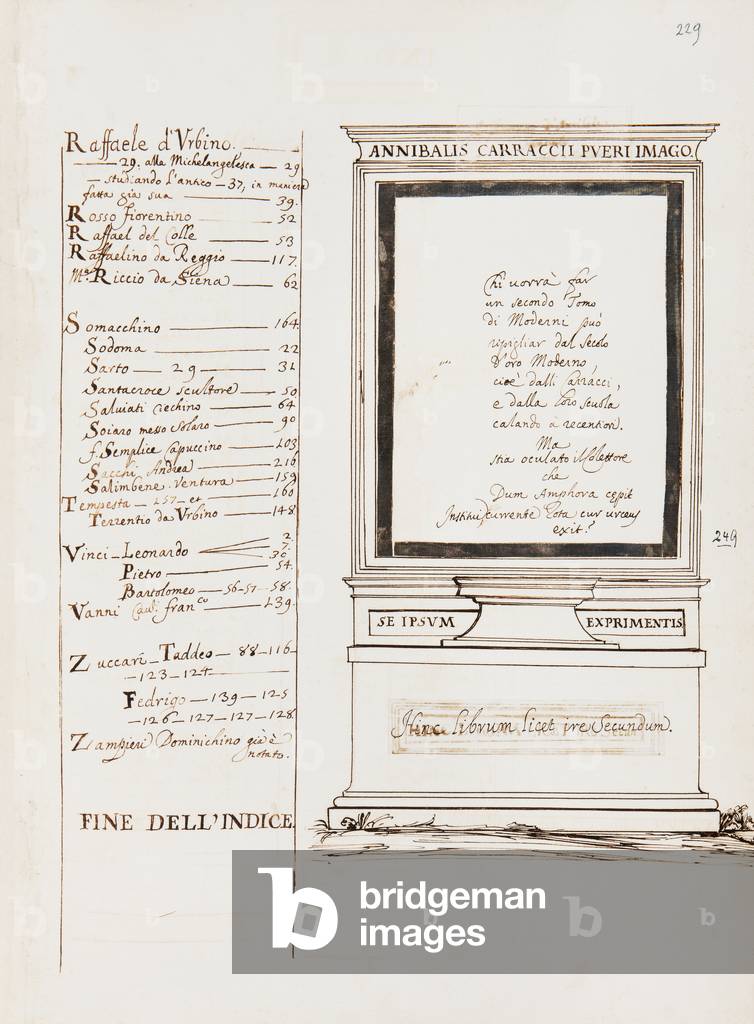 229
Raffaele d'Vrbino.
29. alla Michelangelesca — 29
— studiando l'antico — 37, in maniera
fatta già sua — 39.
Rosso fiorentino — 52
Raffael del Colle — 53
Raffaelino da Reggio — 117.
Mº. Riccio da Siena — 62
Somacchino — 164.
Sodoma — 22
Sarto — 29 — 31
Santacroce scultore — 50
Saluiati Cechino — 64
Soiaro messo Solaro — 90
f. Semplice Capuccino — 103
Sacchi Andrea — 216
Salimbene Ventura — 159
Tempesta — 157 — et — 160
Terrentio da Vrbino — 148
Vinci — Leonardo — 2. 7. 30
Pietro — 54.
Bartolomeo — 56-57 — 58.
Vanni Caul. franco — 139.
Zuccari — Taddeo — 88-116
— 123 — 124
Fedrigo — 139 — 125
— 126 — 127 — 127 — 128.
Zampieri Dominichino già è
notato.
FINE DELL'INDICE
ANNIBALIS CARRACCII PVERI IMAGO.
Chi uorrà far
un secondo Tomo
di Moderni può
ripigliar dal Secolo
d'oro Moderno,
cioè dalli Carracci,
e dalla loro scuola
calando à recentiori.
Ma
stia oculato il Colettore
che
Dum Amphora cępit
Institui, currente Rota cur urceus
exit?
249
SE IPSVM EXPRIMENTIS
Hinc Librum licet ire Secundum.
b bridgeman
images